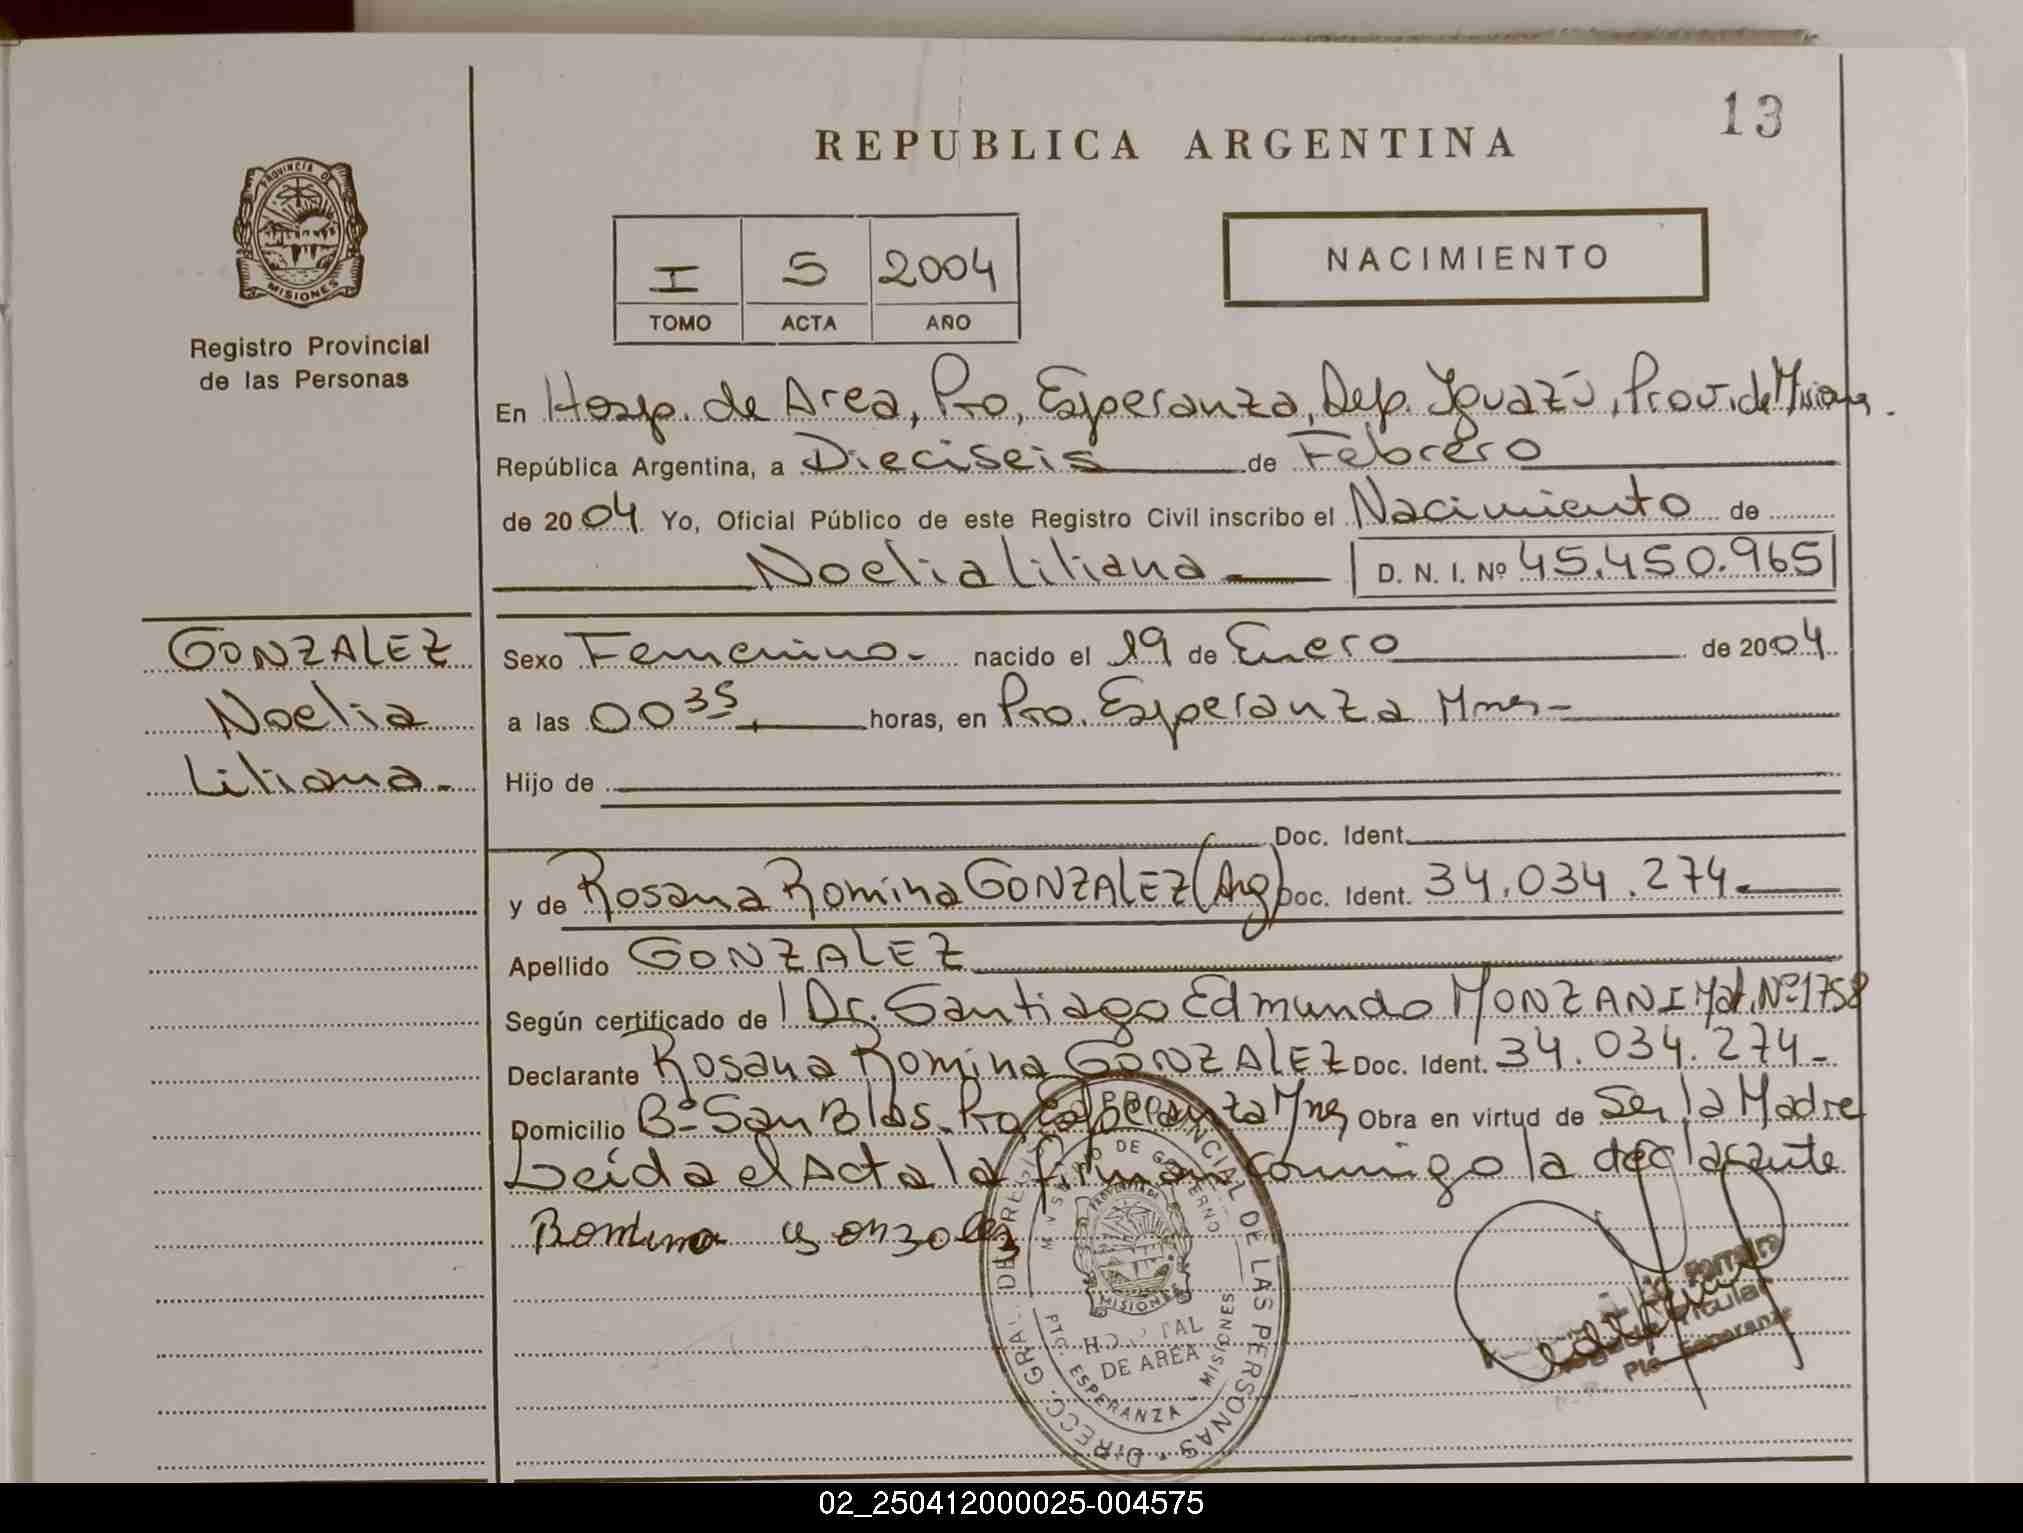 13
REPUBLICA ARGENTINA
PROVINCIA DE
MISIONES
Registro Provincial
de las Personas
I 5 2004
TOMO ACTA AÑO
NACIMIENTO
En Hosp. de Area, Pto, Esperanza, Dep. Iguazú, Prov. de Misiones.
República Argentina, a Dieciseis de Febrero
de 2004 Yo, Oficial Público de este Registro Civil inscribo el Nacimiento de
Noelia Liliana D. N. I. Nº 45.450.965
GONZALEZ
Noelia
Liliana.
Sexo Femenino- nacido el 19 de Enero de 2004
a las 00 35 horas, en Pto. Esperanza Mnes-
Hijo de
Doc. Ident.
y de Rosana Romina GONZALEZ (Arg) Doc. Ident. 34.034.274.
Apellido GONZALEZ
Según certificado de Dr. Santiago Edmundo MONZANI Mat. Nº 1758
Declarante Rosana Romina GONZALEZ Doc. Ident. 34.034.274-
Domicilio Bº San Blas. Pto Esperanza Mnes Obra en virtud de Ser la Madre
Leída el Acta la firman conmigo la declarante
Romina Gonzalez
DIRECC. GRAL. DE REGISTRO PROVINCIAL DE LAS PERSONAS
DE GOBIERNO
PROVINCIA DE
MISIONES
HOSPITAL
DE AREA
PTO. ESPERANZA - MISIONES
Titular
Pto Esperanza
02_250412000025-004575